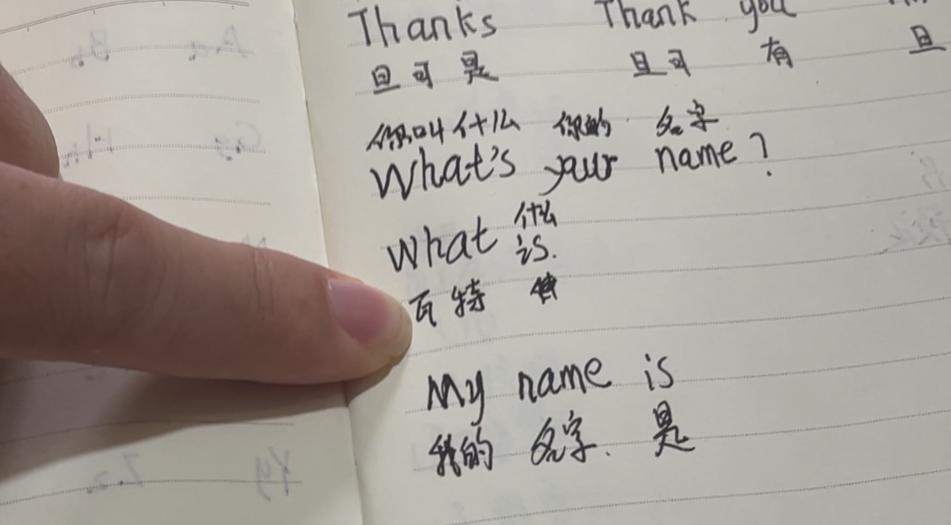 Thanks Thank you
旦可是 旦可 有 旦
你叫什么 你的 名字
What's your name?
什么
What is.
瓦特
My name is
我的 名字. 是